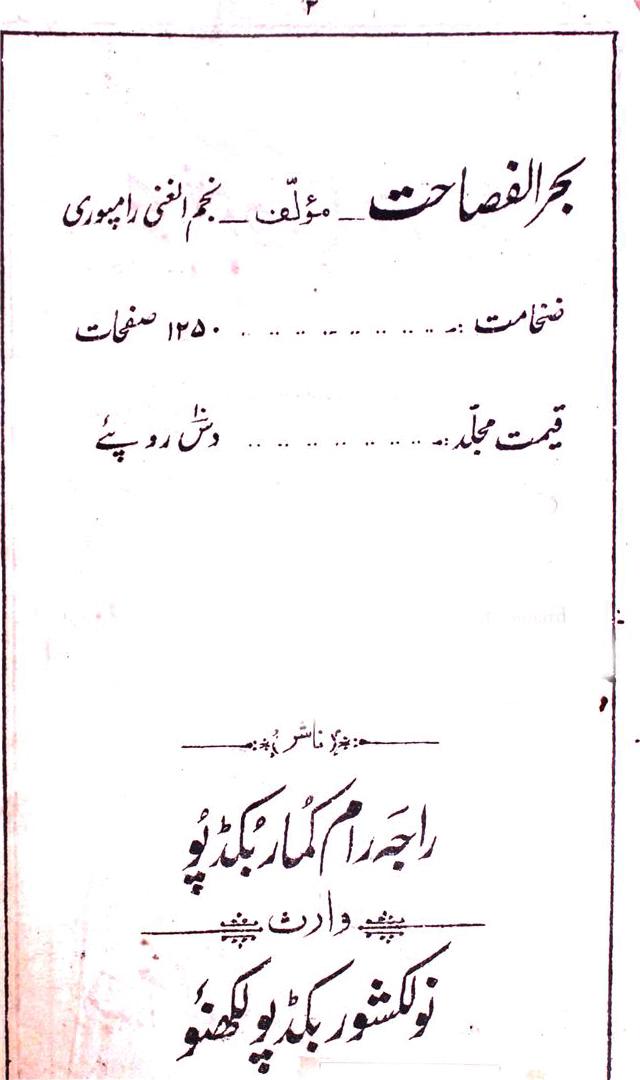 ۲
بحر الفصاحت ــ مؤلّف ــ نجم الغنی رامپوری
ضخامت :۔ .. .. .. .. .. .. .. .. ۱۲۵۰ صفحات
قیمت مجلّد :۔ .. .. .. .. .. .. .. دس۱۰ روپئے
ناشر
راجَہ رام کُمار بُکڈپُو
وارث
نولکشور بکڈپو لکھنؤ